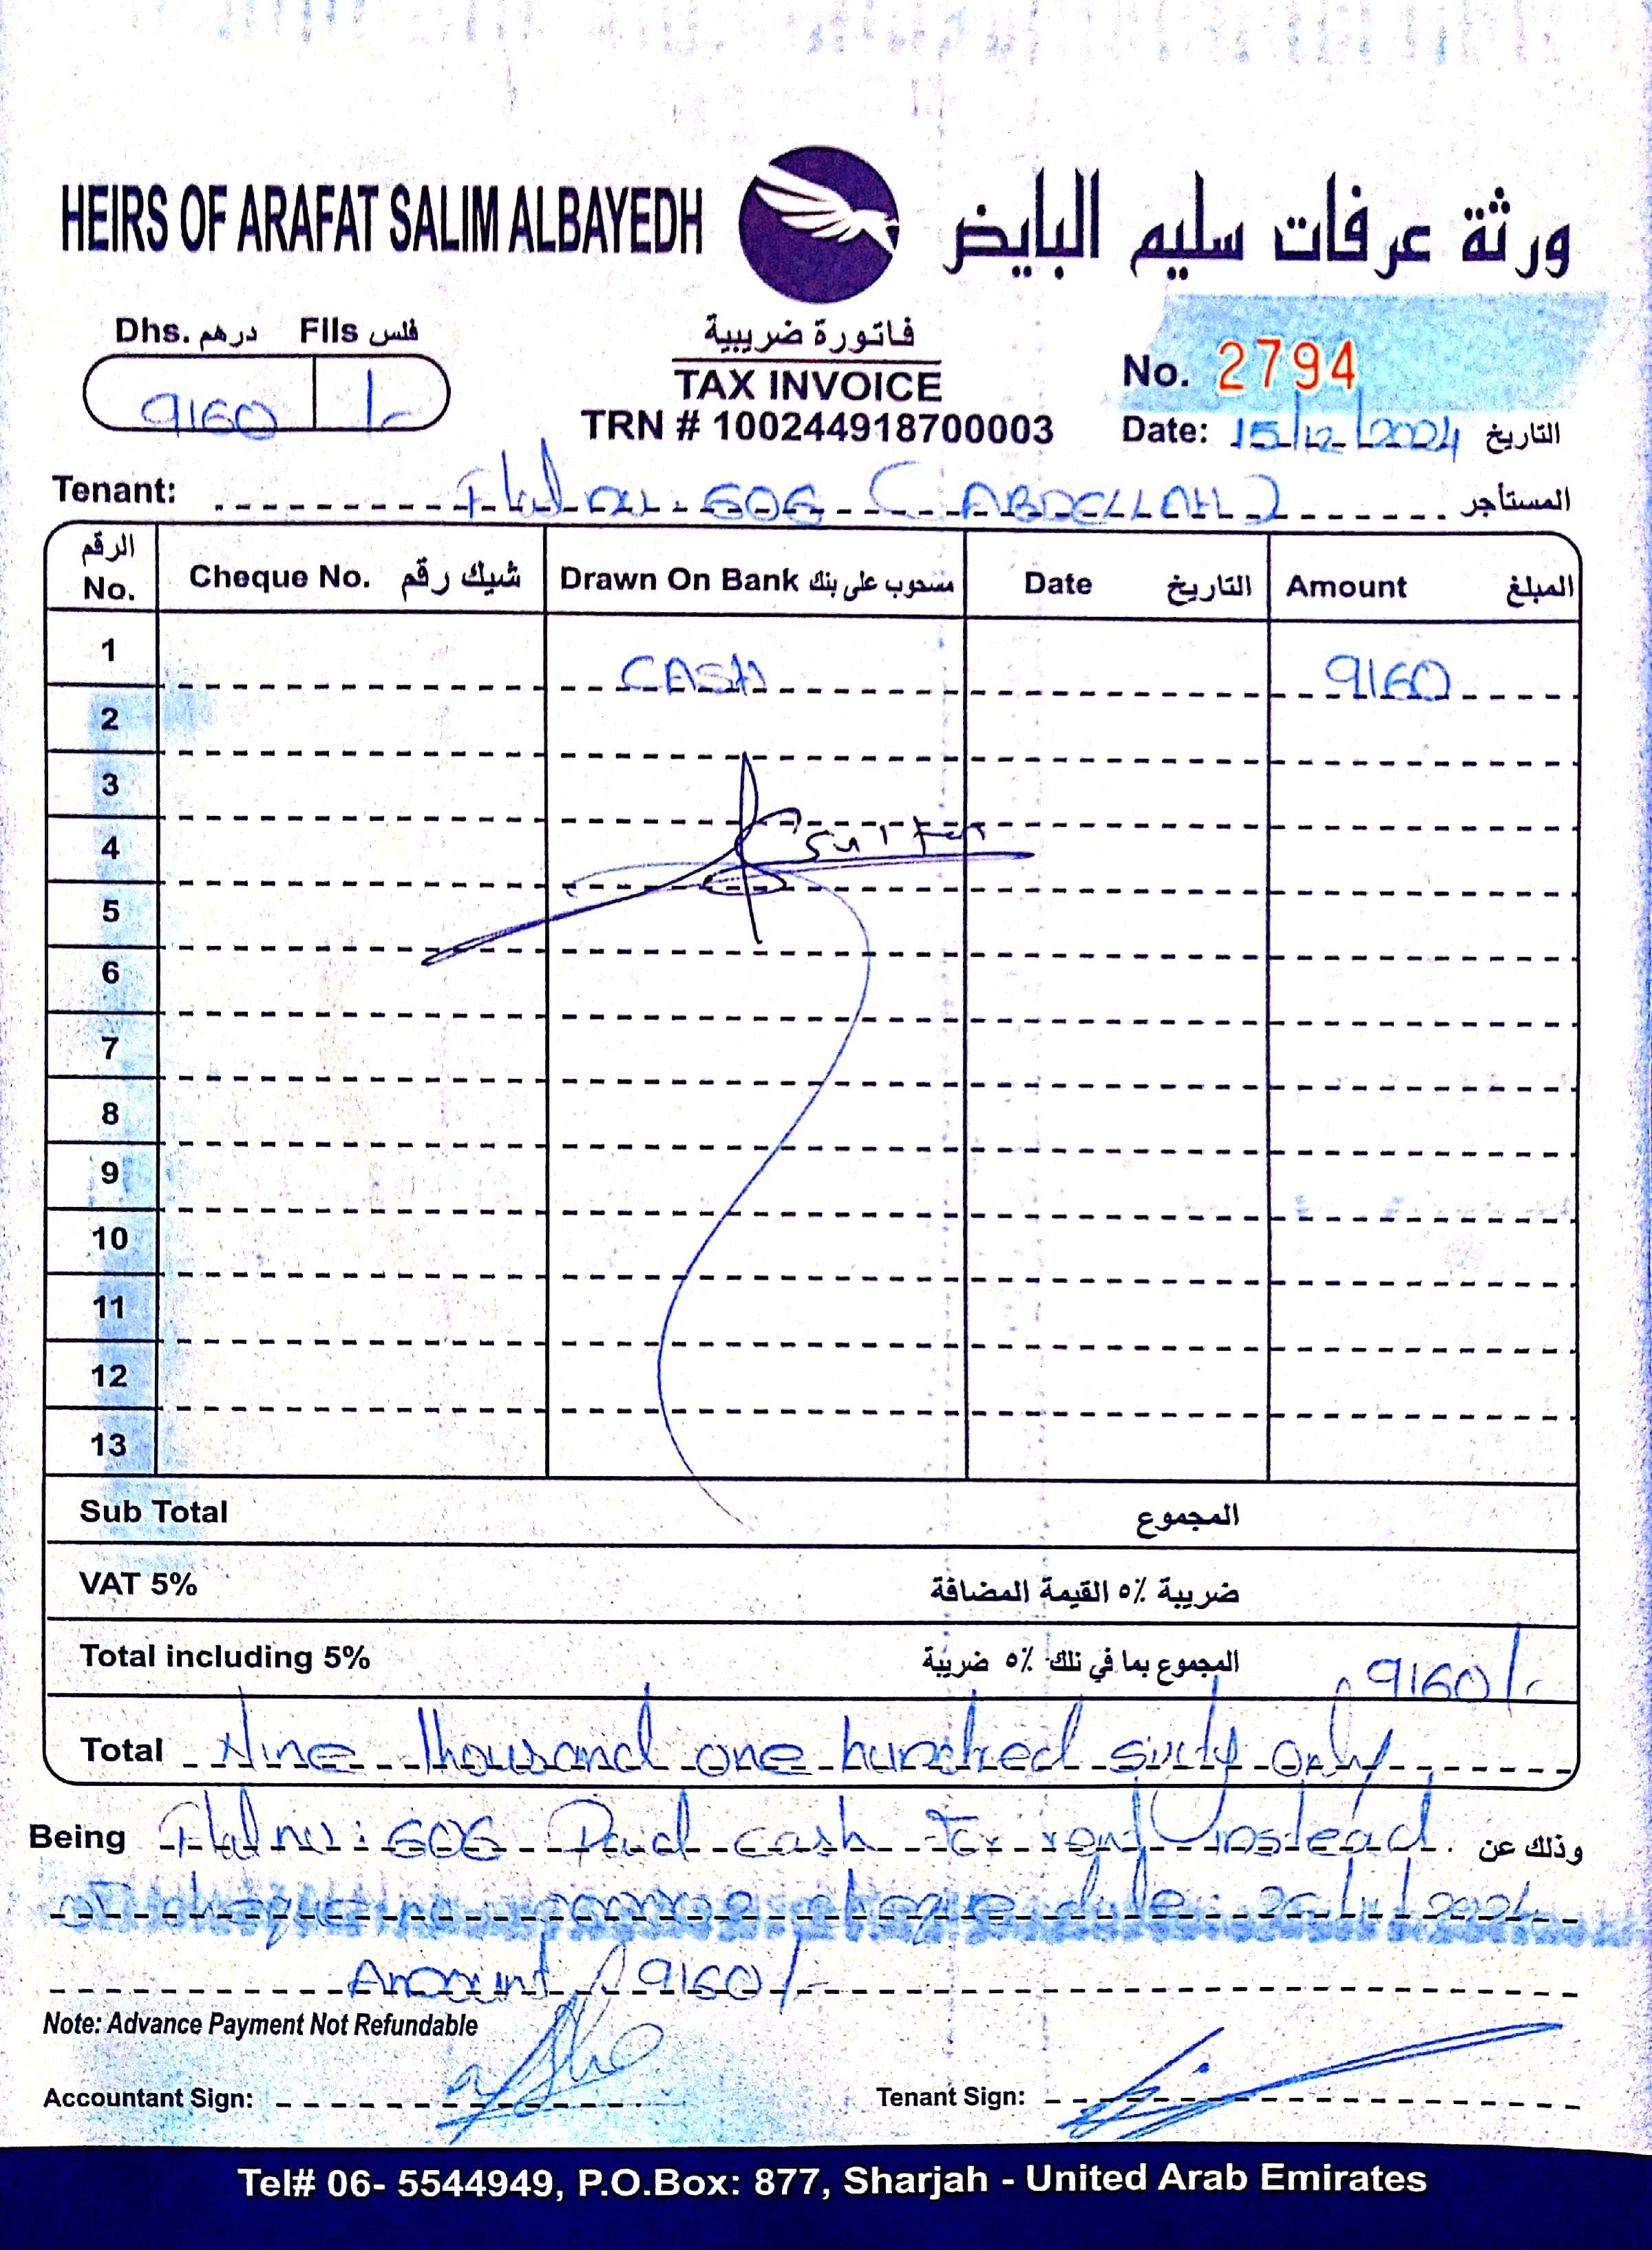 HEIRS OF ARAFAT SALIM ALBAYEDH ورثة عرفات سليم البايض
Dhs. درهم Fils فلس
9160 /-
فاتورة ضريبية
TAX INVOICE
TRN # 100244918700003
No. 2794
Date: 15/12/2024 التاريخ
Tenant: Flat no. 606 (ABDELLAH) المستأجر
الرقم No. Cheque No. شيك رقم Drawn On Bank مسحوب على بنك Date التاريخ Amount المبلغ
1 CASH 9160
2
3
4
5
6
7
8
9
10
11
12
13
Sub Total المجموع
VAT 5% ضريبة ٥٪ القيمة المضافة
Total including 5% المجموع بما في ذلك ٥٪ ضريبة 9160/-
Total Nine thousand one hundred sixty only
Being Flat no: 606 Paid cash for rent instead وذلك عن
of cheque no. cheque date: 2024
Amount 9160/-
Note: Advance Payment Not Refundable
Accountant Sign: Tenant Sign:
Tel# 06- 5544949, P.O.Box: 877, Sharjah - United Arab Emirates